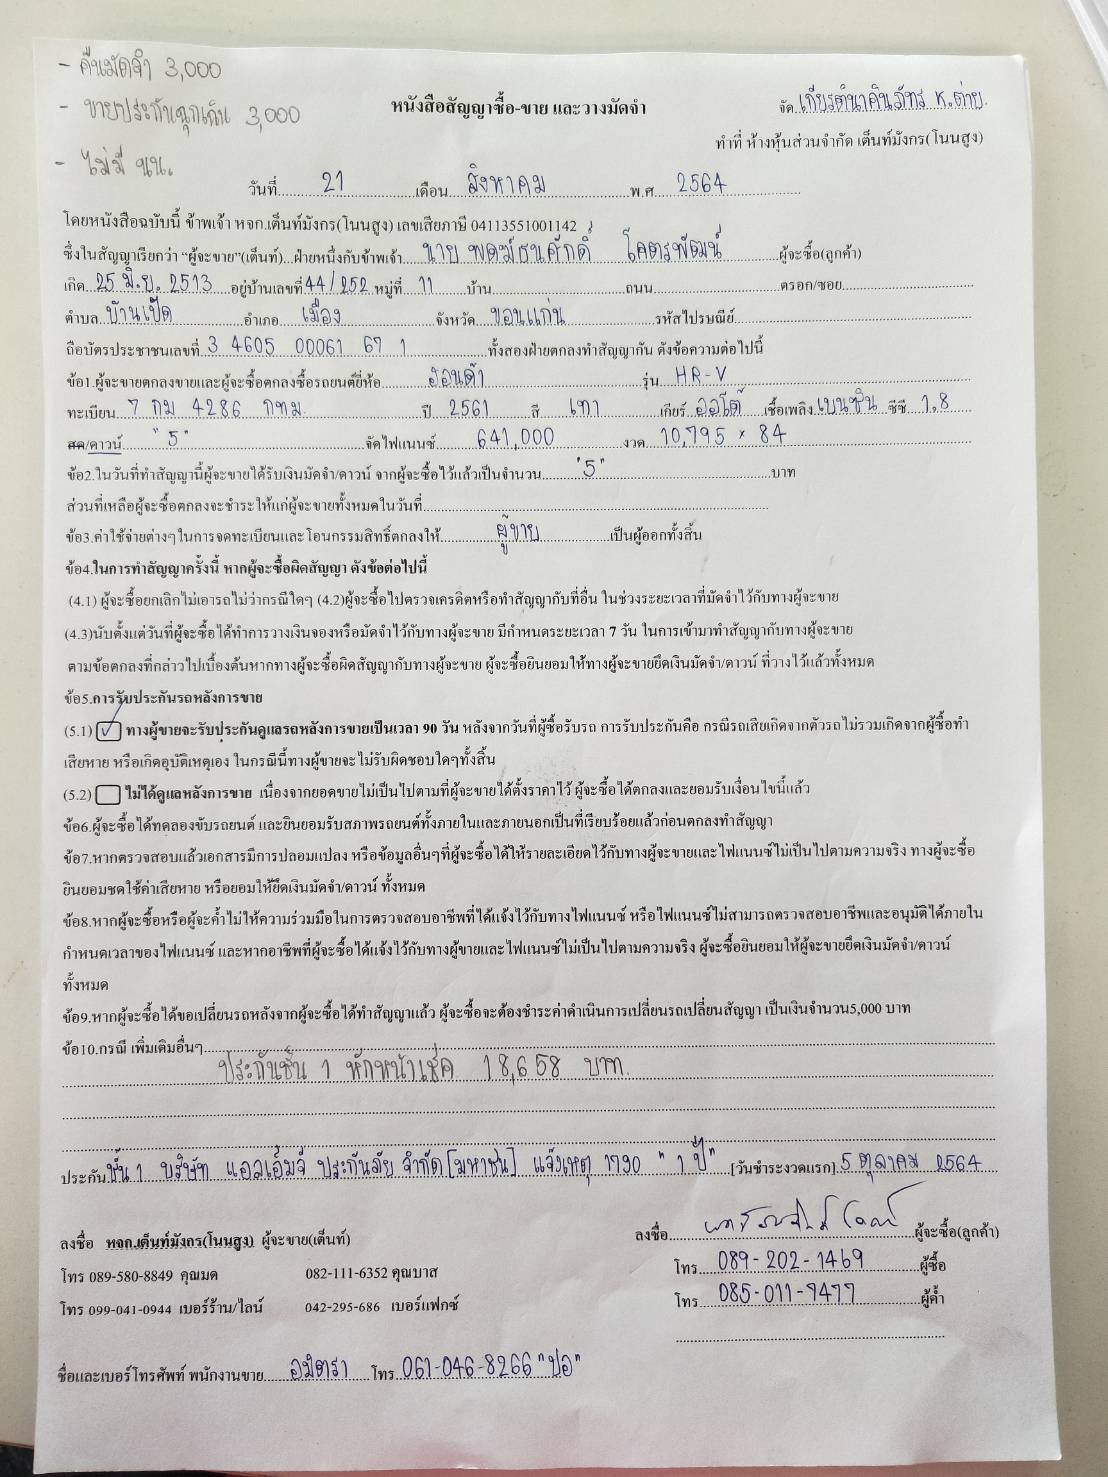 - คืนมัดจำ 3,000
- ขายประกันฉุกเฉิน 3,000
- ไม่มี นน.
หนังสือสัญญาซื้อ-ขาย และวางมัดจำ
จัด เกียรตินาคินภัทร K.ต่าย
ทำที่ ห้างหุ้นส่วนจำกัด เต็นท์มังกร(โนนสูง)
วันที่ 21 เดือน สิงหาคม พ.ศ 2564
โดยหนังสือฉบับนี้ ข้าพเจ้า หจก.เต็นท์มังกร(โนนสูง) เลขเสียภาษี 04113551001142
ซึ่งในสัญญาเรียกว่า "ผู้จะขาย"(เต็นท์)...ฝ่ายหนึ่งกับข้าพเจ้า นาย โคตรพัฒน์ ผู้จะซื้อ(ลูกค้า)
เกิด 25 มิ.ย. 2513 อยู่บ้านเลขที่ 44/252 หมู่ที่ 11 บ้าน ถนน ตรอก/ซอย
ตำบล บ้านเป็ด อำเภอ เมือง จังหวัด ขอนแก่น รหัสไปรษณีย์
ถือบัตรประชาชนเลขที่ 3 4605 00061 67 1 ทั้งสองฝ่ายตกลงทำสัญญากัน ดังข้อความต่อไปนี้
ข้อ1.ผู้จะขายตกลงขายและผู้จะซื้อตกลงซื้อรถยนต์ยี่ห้อ ฮอนด้า รุ่น HR-V
ทะเบียน 7 กม 4286 กทม. ปี 2561 สี เทา เกียร์ ออโต้ เชื้อเพลิง เบนซิน ซีซี 1,8
สด/ดาวน์ "5" จัดไฟแนนซ์ 641,000 งวด 10,795 × 84
ข้อ2.ในวันที่ทำสัญญานี้ผู้จะขายได้รับเงินมัดจำ/ดาวน์ จากผู้จะซื้อไว้แล้วเป็นจำนวน "5" บาท
ส่วนที่เหลือผู้จะซื้อตกลงจะชำระให้แก่ผู้จะขายทั้งหมดในวันที่
ข้อ3.ค่าใช้จ่ายต่างๆในการจดทะเบียนและโอนกรรมสิทธิ์ตกลงให้ ผู้ขาย เป็นผู้ออกทั้งสิ้น
ข้อ4.ในการทำสัญญาครั้งนี้ หากผู้จะซื้อผิดสัญญา ดังข้อต่อไปนี้
(4.1) ผู้จะซื้อยกเลิกไม่เอารถไม่ว่ากรณีใดๆ (4.2)ผู้จะซื้อไปตรวจเครดิตหรือทำสัญญากับที่อื่น ในช่วงระยะเวลาที่มัดจำไว้กับทางผู้จะขาย
(4.3)นับตั้งแต่วันที่ผู้จะซื้อได้ทำการวางเงินจองหรือมัดจำไว้กับทางผู้จะขาย มีกำหนดระยะเวลา 7 วัน ในการเข้ามาทำสัญญากับทางผู้จะขาย
ตามข้อตกลงที่กล่าวไปเบื้องต้นหากทางผู้จะซื้อผิดสัญญากับทางผู้จะขาย ผู้จะซื้อยินยอมให้ทางผู้จะขายยึดเงินมัดจำ/ดาวน์ ที่วางไว้แล้วทั้งหมด
ข้อ5.การรับประกันรถหลังการขาย
(5.1) ทางผู้ขายจะรับประกันดูแลรถหลังการขายเป็นเวลา 90 วัน หลังจากวันที่ผู้ซื้อรับรถ การรับประกันคือ กรณีรถเสียเกิดจากตัวรถไม่รวมเกิดจากผู้ซื้อทำ
เสียหาย หรือเกิดอุบัติเหตุเอง ในกรณีนี้ทางผู้ขายจะไม่รับผิดชอบใดๆทั้งสิ้น
(5.2) ไม่ได้ดูแลหลังการขาย เนื่องจากยอดขายไม่เป็นไปตามที่ผู้จะขายได้ตั้งราคาไว้ ผู้จะซื้อได้ตกลงและยอมรับเงื่อนไขนี้แล้ว
ข้อ6.ผู้จะซื้อได้ทดลองขับรถยนต์ และยินยอมรับสภาพรถยนต์ทั้งภายในและภายนอกเป็นที่เรียบร้อยแล้วก่อนตกลงทำสัญญา
ข้อ7.หากตรวจสอบแล้วเอกสารมีการปลอมแปลง หรือข้อมูลอื่นๆที่ผู้จะซื้อได้ให้รายละเอียดไว้กับทางผู้จะขายและไฟแนนซ์ไม่เป็นไปตามความจริง ทางผู้จะซื้อ
ยินยอมชดใช้ค่าเสียหาย หรือยอมให้ยึดเงินมัดจำ/ดาวน์ ทั้งหมด
ข้อ8.หากผู้จะซื้อหรือผู้จะค้ำไม่ให้ความร่วมมือในการตรวจสอบอาชีพที่ได้แจ้งไว้กับทางไฟแนนซ์ หรือไฟแนนซ์ไม่สามารถตรวจสอบอาชีพและอนุมัติได้ภายใน
กำหนดเวลาของไฟแนนซ์ และหากอาชีพที่ผู้จะซื้อได้แจ้งไว้กับทางผู้ขายและไฟแนนซ์ไม่เป็นไปตามความจริง ผู้จะซื้อยินยอมให้ผู้จะขายยึดเงินมัดจำ/ดาวน์
ทั้งหมด
ข้อ9.หากผู้จะซื้อได้ขอเปลี่ยนรถหลังจากผู้จะซื้อได้ทำสัญญาแล้ว ผู้จะซื้อจะต้องชำระค่าดำเนินการเปลี่ยนรถเปลี่ยนสัญญา เป็นเงินจำนวน5,000 บาท
ข้อ10.กรณี เพิ่มเติมอื่นๆ
ประกันชั้น 1 หักหน้าเช็ค 18,658 บาท.
ประกัน ชั้น 1 บริษัท แอลเอ็มจี ประกันภัย จำกัด [มหาชน] แจ้งเหตุ 1790 "1 ปี" [วันชำระงวดแรก] 5 ตุลาคม 2564
ลงชื่อ หจก.เต็นท์มังกร(โนนสูง) ผู้จะขาย(เต็นท์)
ลงชื่อ ผู้จะซื้อ(ลูกค้า)
โทร 089-580-8849 คุณมด 082-111-6352 คุณบาส
โทร 089-202-1469 ผู้ซื้อ
โทร 099-041-0944 เบอร์ร้าน/ไลน์ 042-295-686 เบอร์แฟกซ์
โทร 085-011-9477 ผู้ค้ำ
ชื่อและเบอร์โทรศัพท์ พนักงานขาย อมิตรา โทร 061-046-8266 "ปอ"